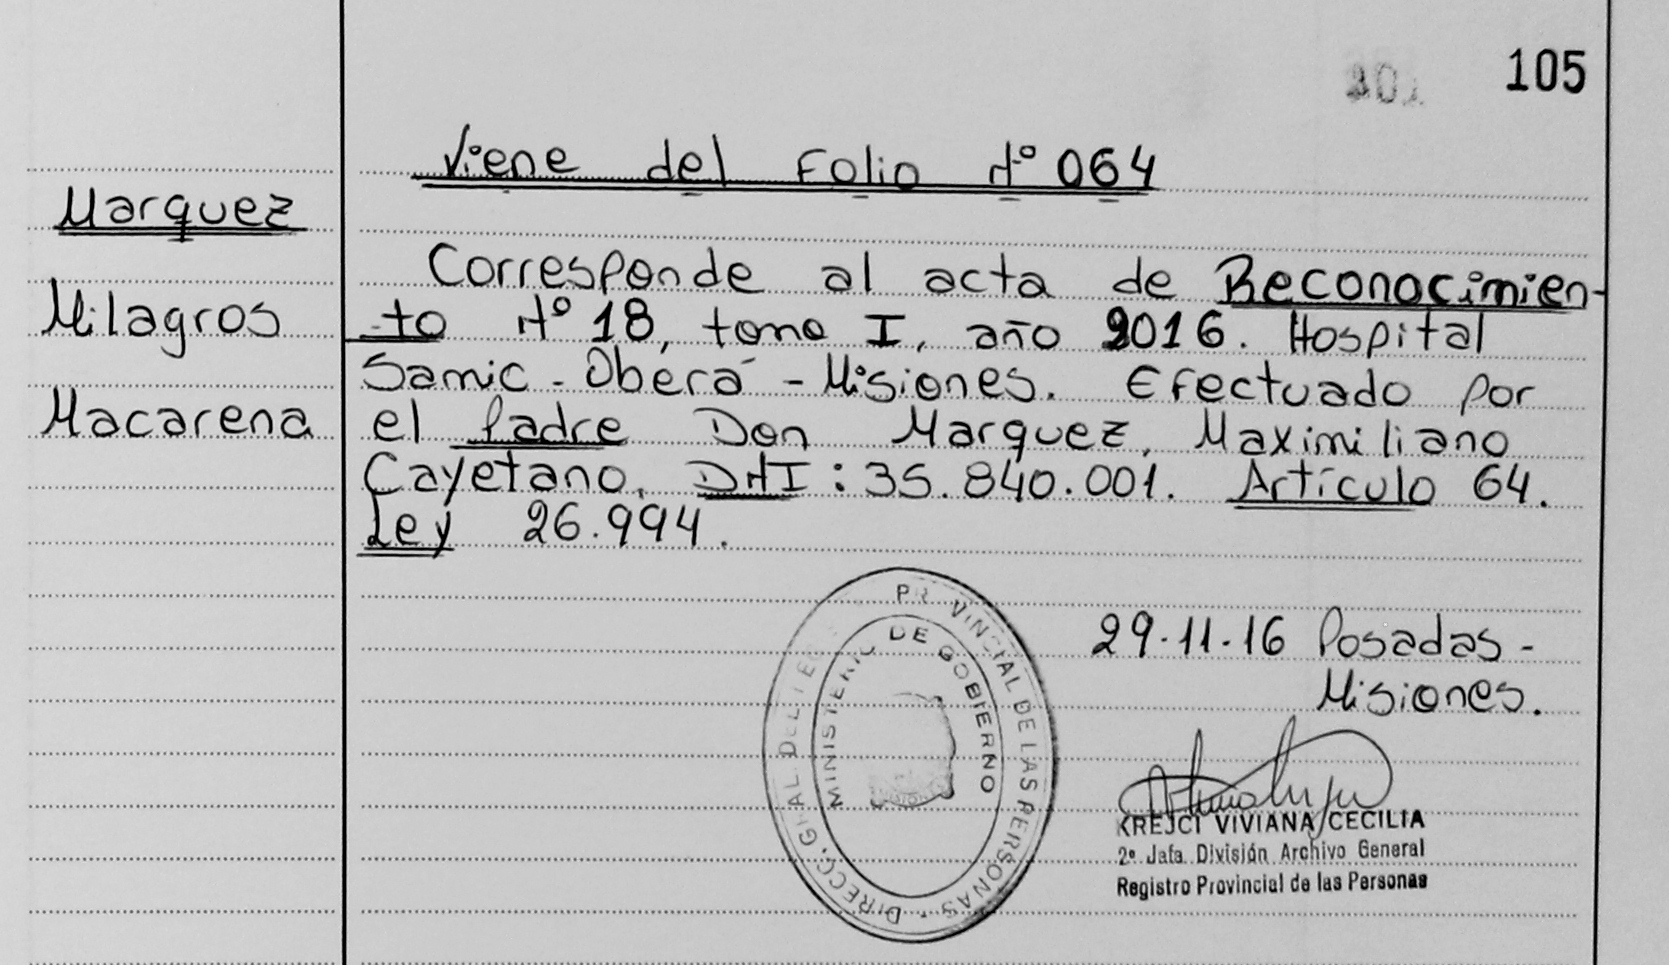 105
Viene del Folio Nº 064
Marquez
Milagros
Macarena
Corresponde al acta de Reconocimien-
to Nº 18, tomo I, año 2016. Hospital
Samic - Oberá - Misiones. Efectuado por
el Padre Don Marquez, Maximiliano
Cayetano, DNI: 35.840.001. Artículo 64.
Ley 26.994.
29.11.16 Posadas -
Misiones.
PROVINCIAL DE LAS PERSONAS - DIRECC. GRAL. DEL
MINISTERIO DE GOBIERNO
KREJCI VIVIANA CECILIA
2º Jefa División Archivo General
Registro Provincial de las Personas